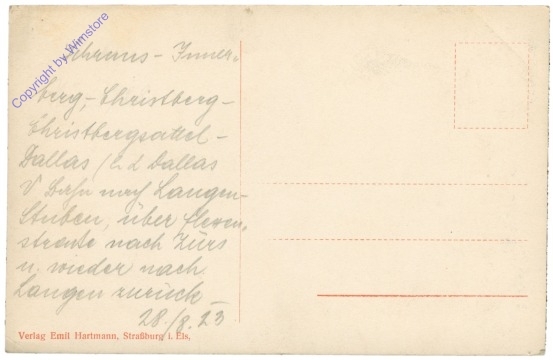 Schruns - Inner-
berg, - Christberg -
Christbergsattel -
Dallas / b. d Dallas
V Bahn nach Langen-
Stuben, über flexen-
straße nach Zürs
u. wieder nach
Langen zurück
28./8.23
Verlag Emil Hartmann, Straßburg i. Els.
Copyright by Wimstore